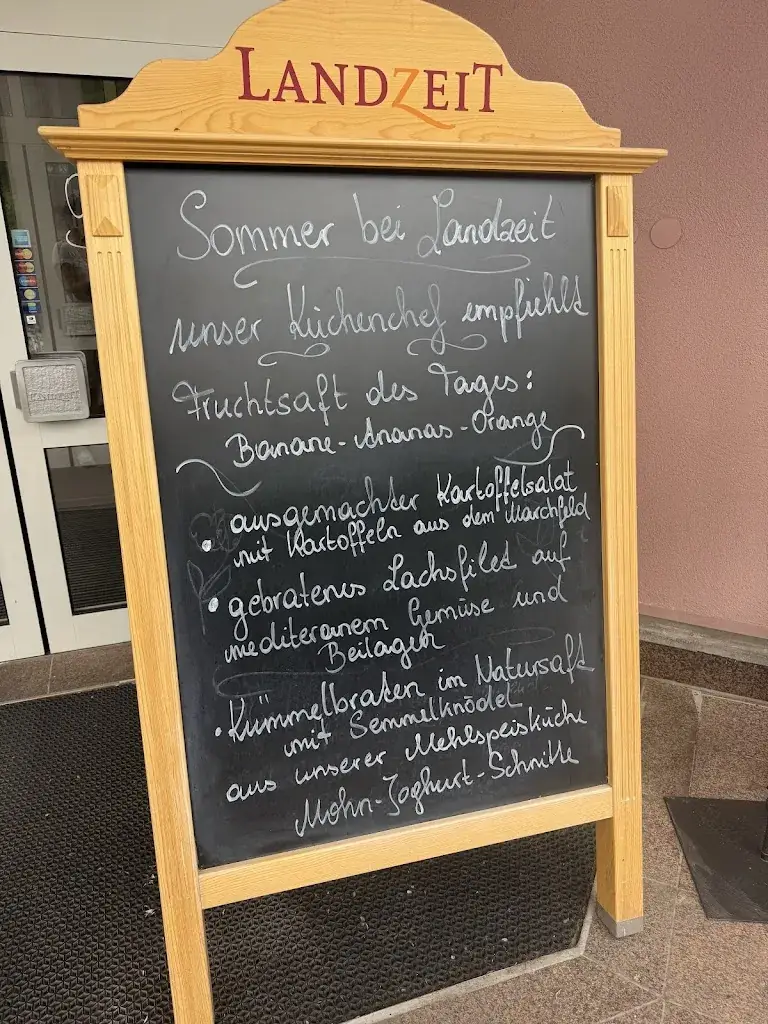 LANDZEIT
Sommer bei Landzeit
unser Küchenchef empfiehlt
Fruchtsaft des Tages:
Banane-Ananas-Orange
• ausgemachter Kartoffelsalat
mit Kartoffeln aus dem Marchfeld
• gebratenes Lachsfilet auf
mediteranem Gemüse und
Beilagen
• Kümmelbraten im Natursaft
mit Semmelknödel
aus unserer Mehlspeisküche
Mohn-Joghurt-Schnitte